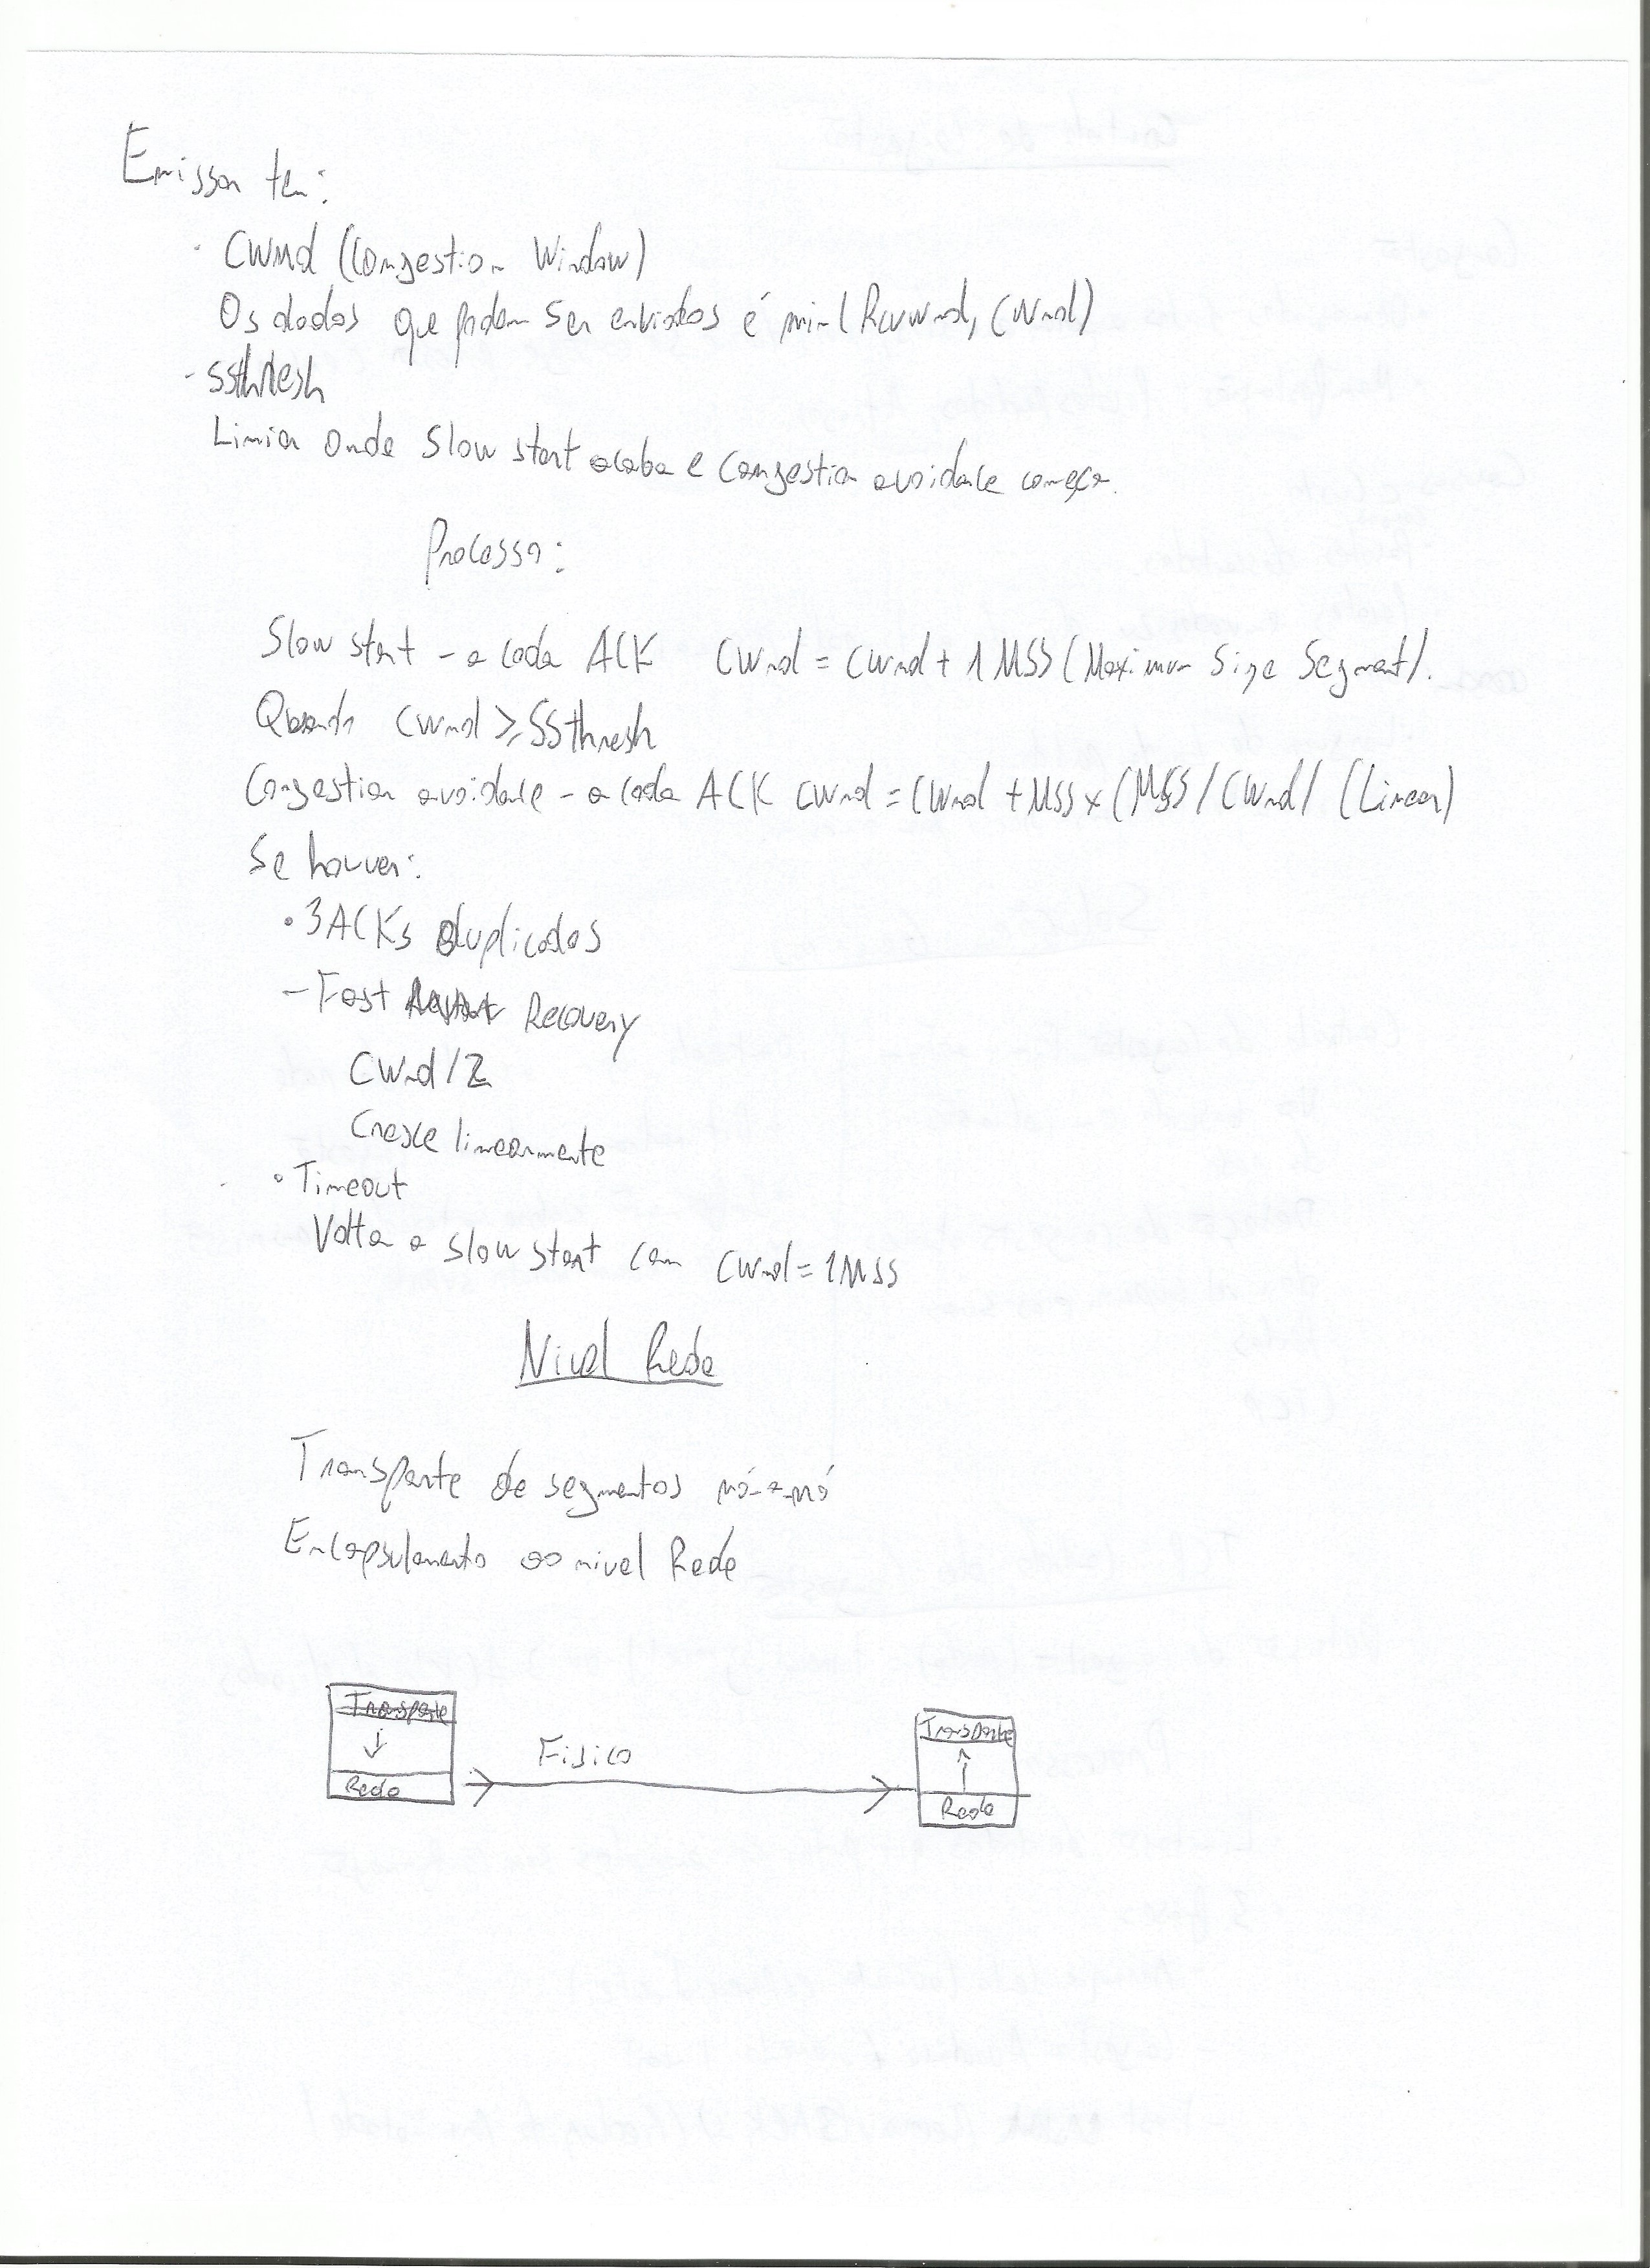 Emissor tem:
· Cwnd (Congestion Window)
Os dados que podem ser enviados é min(Rcvwnd, Cwnd)
- ssthresh
Limiar onde Slow start acaba e Congestion avoidance começa.
Processo:
Slow start - a cada ACK Cwnd = Cwnd + 1 MSS (Maximum Size Segment).
Quando Cwnd ≥ SSthresh
Congestion avoidance - a cada ACK Cwnd = Cwnd + MSS x (MSS / Cwnd) (Linear)
Se houver:
• 3 ACKs duplicados
- Fast Recovery
Cwnd/2
Cresce linearmente
• Timeout
Volta a slow start com Cwnd = 1 MSS
Nivel Rede
Transporte de segmentos nó-a-nó
Encapsulamento ao nivel Rede
Transporte
Transporte
Fisico
Rede
Rede